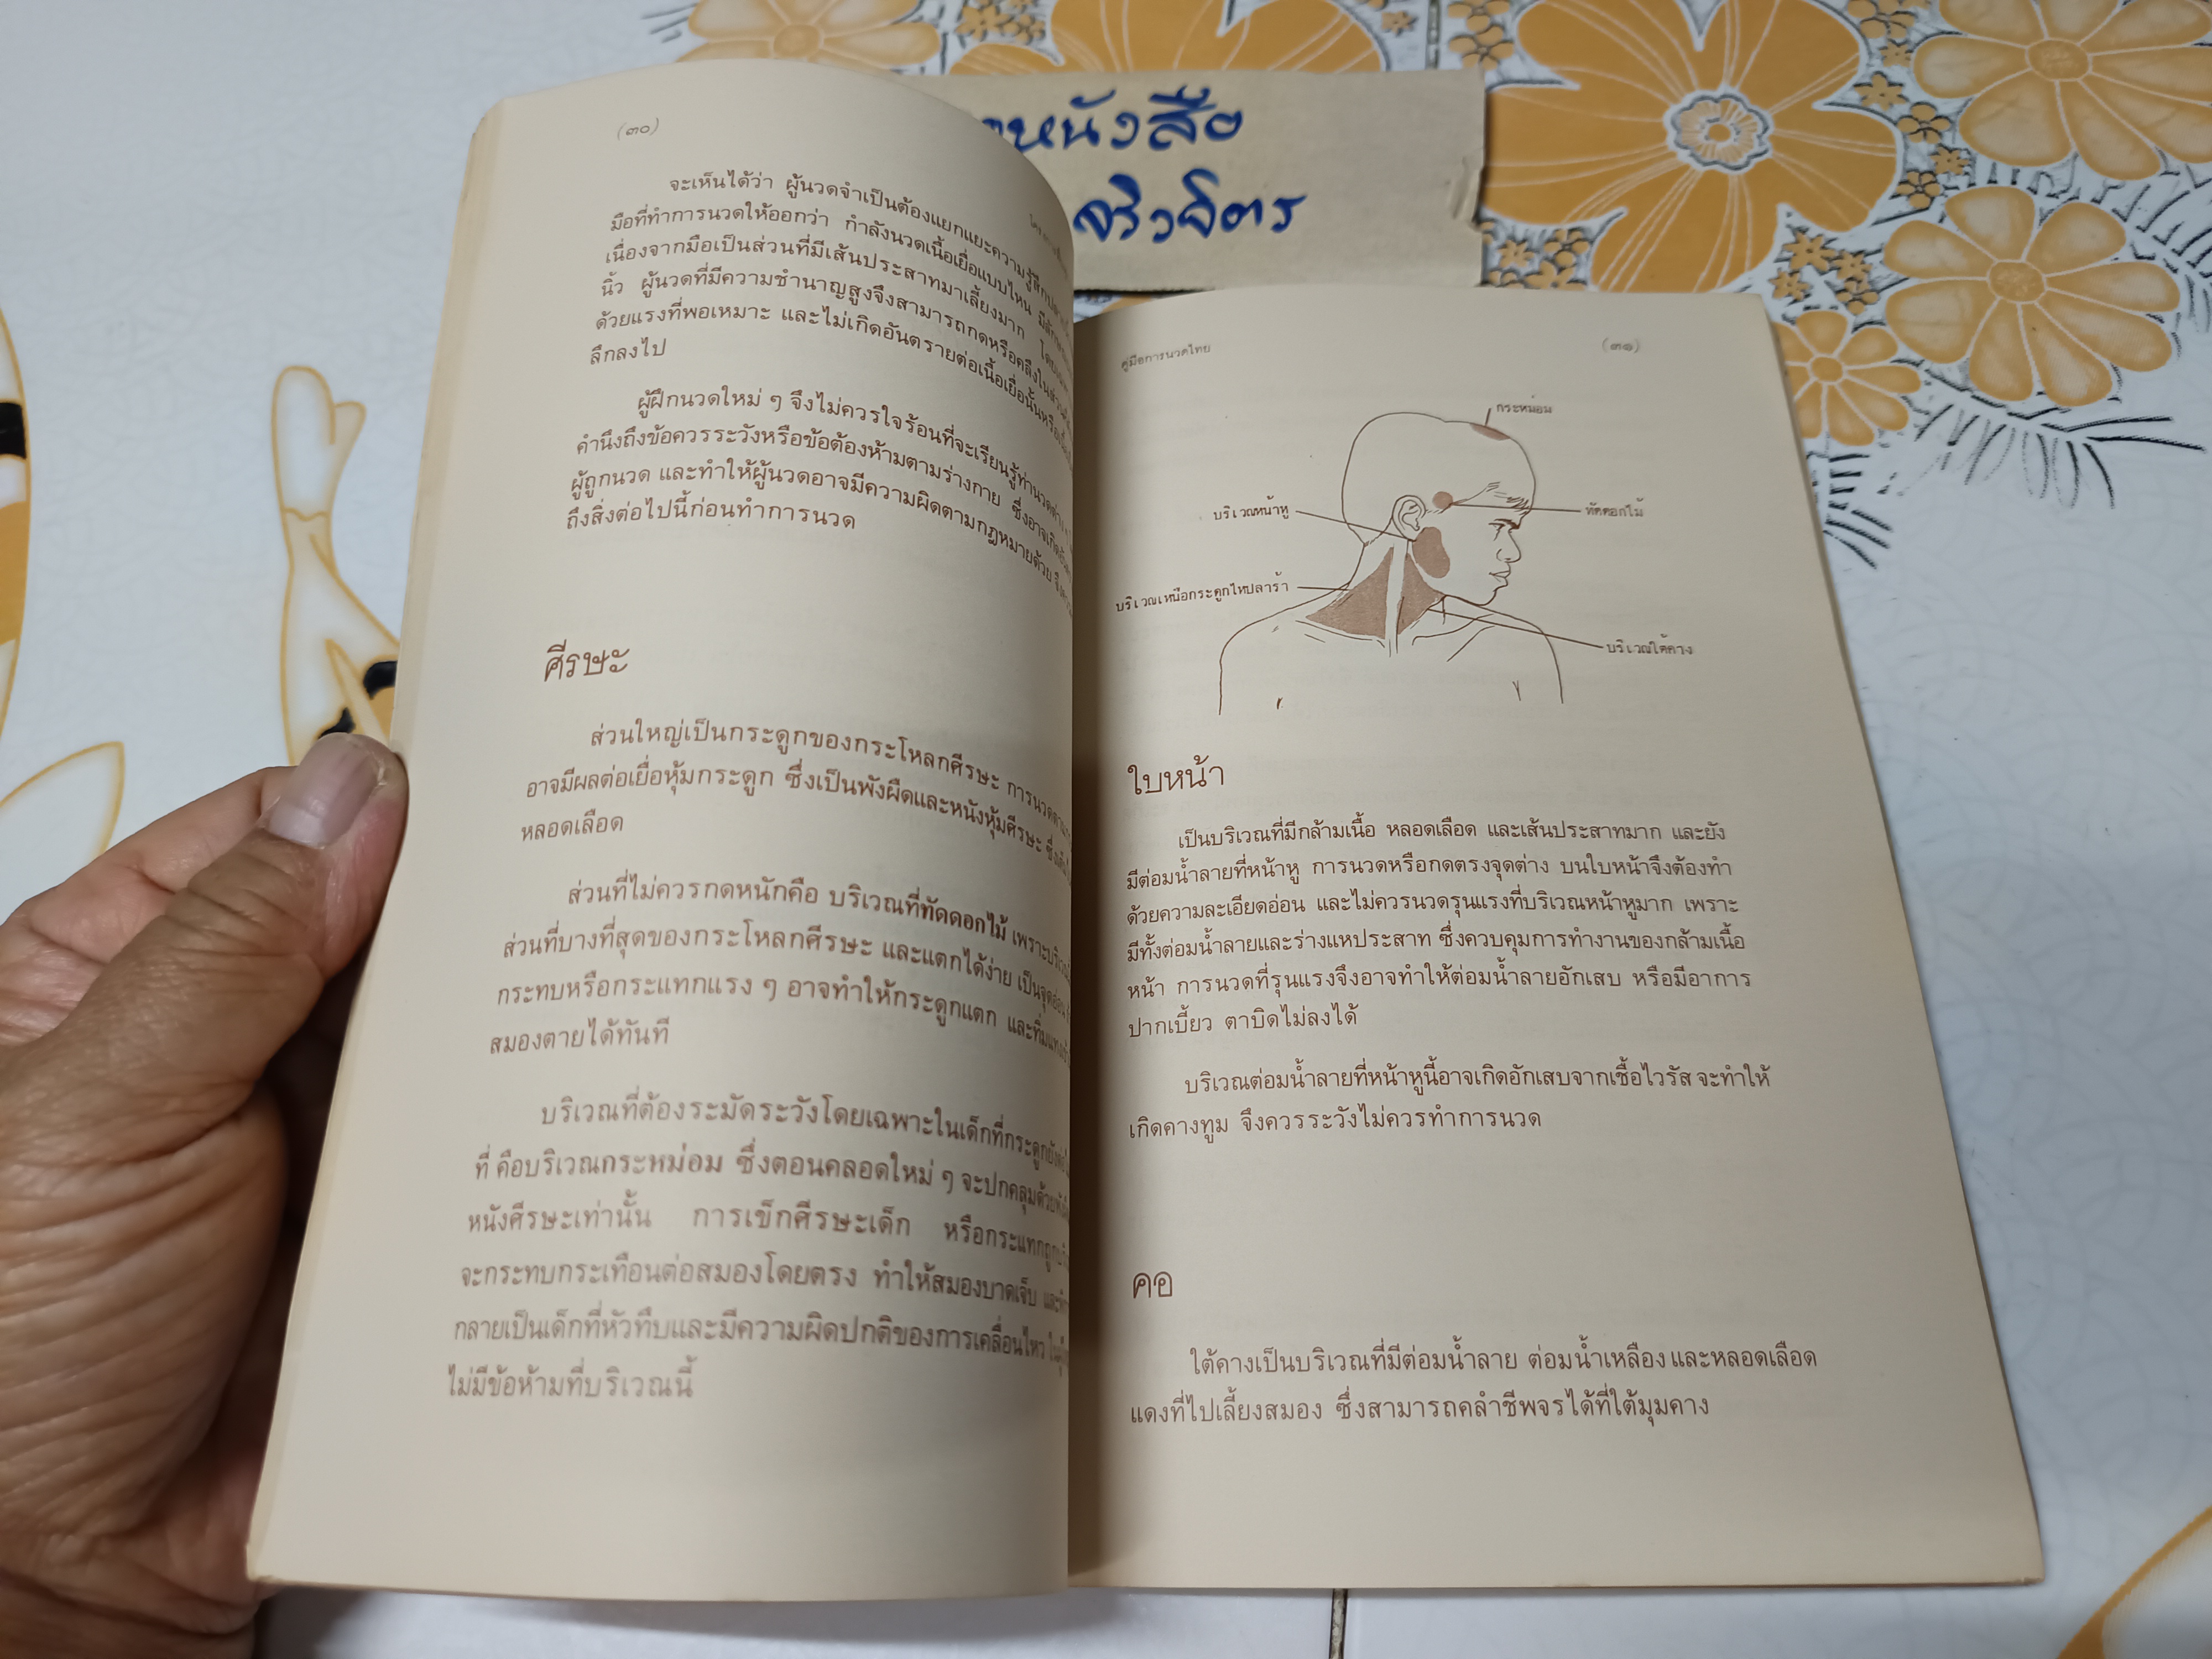 หนังสือ
จริงจิตร
(๓๐)
จะเห็นได้ว่า ผู้นวดจำเป็นต้องแยกแยะความรู้สึก
มือที่ทำการนวดให้ออกว่า กำลังนวดเนื้อเยื่อแบบไหน
เนื่องจากมือเป็นส่วนที่มีเส้นประสาทมาเลี้ยงมาก
นิ้ว ผู้นวดที่มีความชำนาญสูงจึงสามารถกดหรือดึงในส่วน
ด้วยแรงที่พอเหมาะ และไม่เกิดอันตรายต่อเนื้อเยื่อนั้น
ลึกลงไป
ผู้ฝึกนวดใหม่ ๆ จึงไม่ควรใจร้อนที่จะเรียนรู้ท่านวดต่าง ๆ
คำนึงถึงข้อควรระวังหรือข้อต้องห้ามตามร่างกาย ซึ่งอาจเกิด
ผู้ถูกนวด และทำให้ผู้นวดอาจมีความผิดตามกฎหมายด้วย
ถึงสิ่งต่อไปนี้ก่อนทำการนวด
ศีรษะ
ส่วนใหญ่เป็นกระดูกของกระโหลกศีรษะ การนวด
อาจมีผลต่อเยื่อหุ้มกระดูก ซึ่งเป็นพังผืดและหนังหุ้มศีรษะ
หลอดเลือด
ส่วนที่ไม่ควรกดหนักคือ บริเวณที่ทัดดอกไม้ เพราะ
ส่วนที่บางที่สุดของกระโหลกศีรษะ และแตกได้ง่าย เป็นจุดอ่อน
กระทบหรือกระแทกแรง ๆ อาจทำให้กระดูกแตก และทิ่มแทง
สมองตายได้ทันที
บริเวณที่ต้องระมัดระวังโดยเฉพาะในเด็กที่กระดูกยัง
ที่ คือบริเวณกระหม่อม ซึ่งตอนคลอดใหม่ ๆ จะปกคลุมด้วย
หนังศีรษะเท่านั้น การเข็กศีรษะเด็ก หรือกระแทกถูก
จะกระทบกระเทือนต่อสมองโดยตรง ทำให้สมองบาดเจ็บ
กลายเป็นเด็กที่หัวทึบและมีความผิดปกติของการเคลื่อนไหว
ไม่มีข้อห้ามที่บริเวณนี้
คู่มือการนวดไทย (๓๑)
กระหม่อม
บริเวณหน้าหู
ทัดดอกไม้
บริเวณเหนือกระดูกไหปลาร้า
บริเวณใต้คาง
ใบหน้า
เป็นบริเวณที่มีกล้ามเนื้อ หลอดเลือด และเส้นประสาทมาก และยัง
มีต่อมน้ำลายที่หน้าหู การนวดหรือกดตรงจุดต่าง บนใบหน้าจึงต้องทำ
ด้วยความละเอียดอ่อน และไม่ควรนวดรุนแรงที่บริเวณหน้าหูมาก เพราะ
มีทั้งต่อมน้ำลายและร่างแหประสาท ซึ่งควบคุมการทำงานของกล้ามเนื้อ
หน้า การนวดที่รุนแรงจึงอาจทำให้ต่อมน้ำลายอักเสบ หรือมีอาการ
ปากเบี้ยว ตาปิดไม่ลงได้
บริเวณต่อมน้ำลายที่หน้าหูนี้อาจเกิดอักเสบจากเชื้อไวรัส จะทำให้
เกิดคางทูม จึงควรระวังไม่ควรทำการนวด
คอ
ใต้คางเป็นบริเวณที่มีต่อมน้ำลาย ต่อมน้ำเหลือง และหลอดเลือด
แดงที่ไปเลี้ยงสมอง ซึ่งสามารถคลำชีพจรได้ที่ใต้มุมคาง